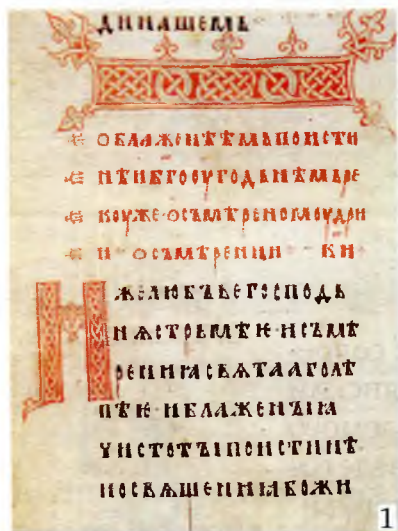 ДИНАШЕМЬ
ОБЛАЖЕНѢѢМЬПОИСТИ
НѢИБГОѸГОДЬНѢМЬРЕ
КОУЖЕ·ОСЪМѢРЕНОМОУДРИ
И · ОСЪМѢРЕНИИ КН
ЖЕЛЮБЪВЕГОСПОДЬ
НѦСТРЬМѢѤ·ИСЪМѢ
РЕНИꙖСВѦТААГОЛѢ
ПѢѤ·ИБЛАЖЕНЪІꙖ
ЧИСТОТЪІПОИСТИНѢ
ИОСВѦШЕНИꙖБОЖИ
1